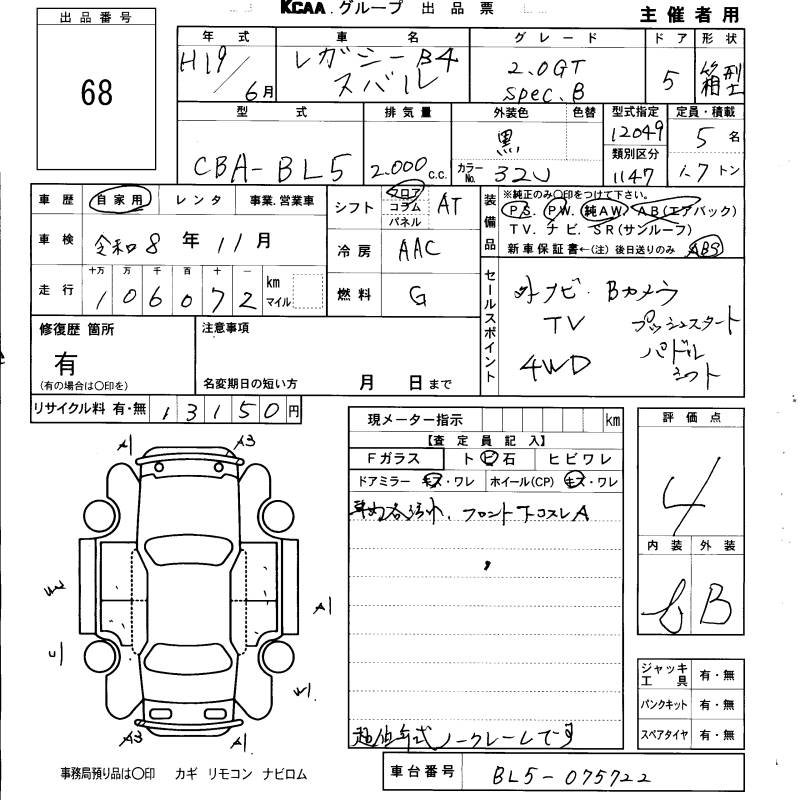 KCAA.グループ 出品票
主催者用
出品番号
68
年式 車名 グレード ドア 形状
H19/6月 レガシーB4 スバル 2.0GT spec.B 5 箱型
型式 排気量 外装色 色替 型式指定 定員・積載
CBA-BL5 2.000 c.c. 黒 12049 5名
カラーNo. 32J 類別区分 1147 1.7トン
車歴 自家用 レンタ 事業.営業車
シフト フロア コラム パネル AT
装備品 ※純正のみ○印をつけて下さい。
PS. PW. 純AW. AB(エアバック)
TV. ナビ. SR(サンルーフ)
新車保証書←(注) 後日送りのみ ABS
車検 令和8年11月
冷房 AAC
走行 十万 万 千 百 十 一
106072 km マイル
燃料 G
セールスポイント
ナビ. Bカメラ
TV プッシュスタート
4WD パドルシフト
修復歴 箇所
有
(有の場合は○印を)
注意事項
名変期日の短い方 月 日まで
リサイクル料 有・無 13150円
現メーター指示 km
【査定員記入】
Fガラス トビ石 ヒビワレ
ドアミラー キズ・ワレ ホイール(CP) キズ・ワレ
フロント下コスレA
ノークレームです
評価点
4
内装 外装
B
A1 A3
W
A1
U
W1
A3 A1
ジャッキ工具 有・無
パンクキット 有・無
スペアタイヤ 有・無
事務局預り品は○印 カギ リモコン ナビロム
車台番号 BL5-075722